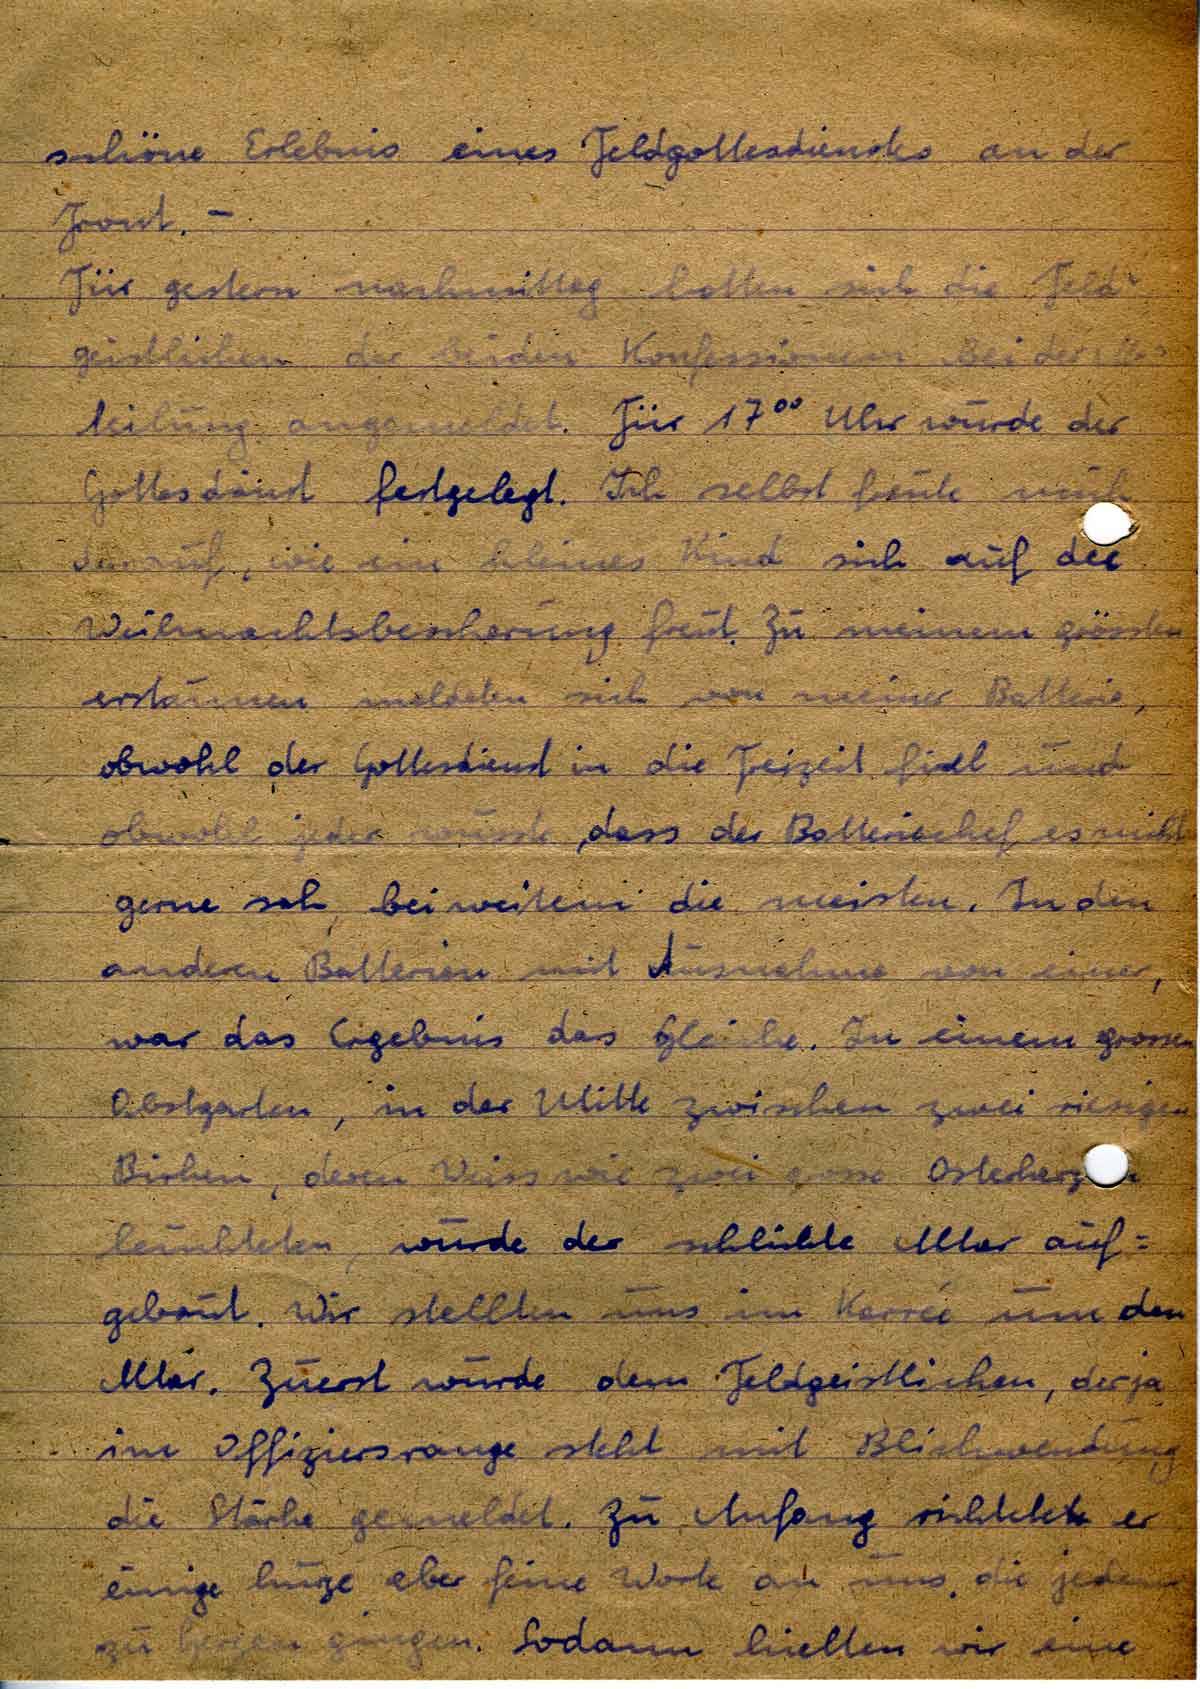 schöne Erlebnis eines Feldgottesdienstes an der
Front. -
Für gestern nachmittag hatten sich die Feld-
geistlichen der beiden Konfessionen bei der Ab-
teilung angemeldet. Für 17⁰⁰ Uhr wurde der
Gottesdienst festgelegt. Ich selbst freute mich
darauf, wie ein kleines Kind sich auf die
Weihnachtsbescherung freut. Zu meinem grössten
erstaunen meldeten sich von meiner Batterie,
obwohl der Gottesdienst in die Freizeit fiel und
obwohl jeder wusste, dass der Batteriechef es nicht
gerne sah, bei weitem die meisten. In den
anderen Batterien mit Ausnahme von einer,
war das Ergebnis das Gleiche. In einem grossen
Obstgarten, in der Mitte zwischen zwei riesigen
Birken, deren Weiss wie zwei grosse Osterkerzen
leuchteten wurde der schlichte Altar auf=
gebaut. Wir stellten uns im Karrée um den
Altar. Zuerst wurde dem Feldgeistlichen, der ja
im Offiziersrange steht mit Blickwendung
die Stärke gemeldet. Zu Anfang richtete er
einige kurze aber feine Worte an uns, die jedem
zu Herzen gingen. Sodann hielten wir eine